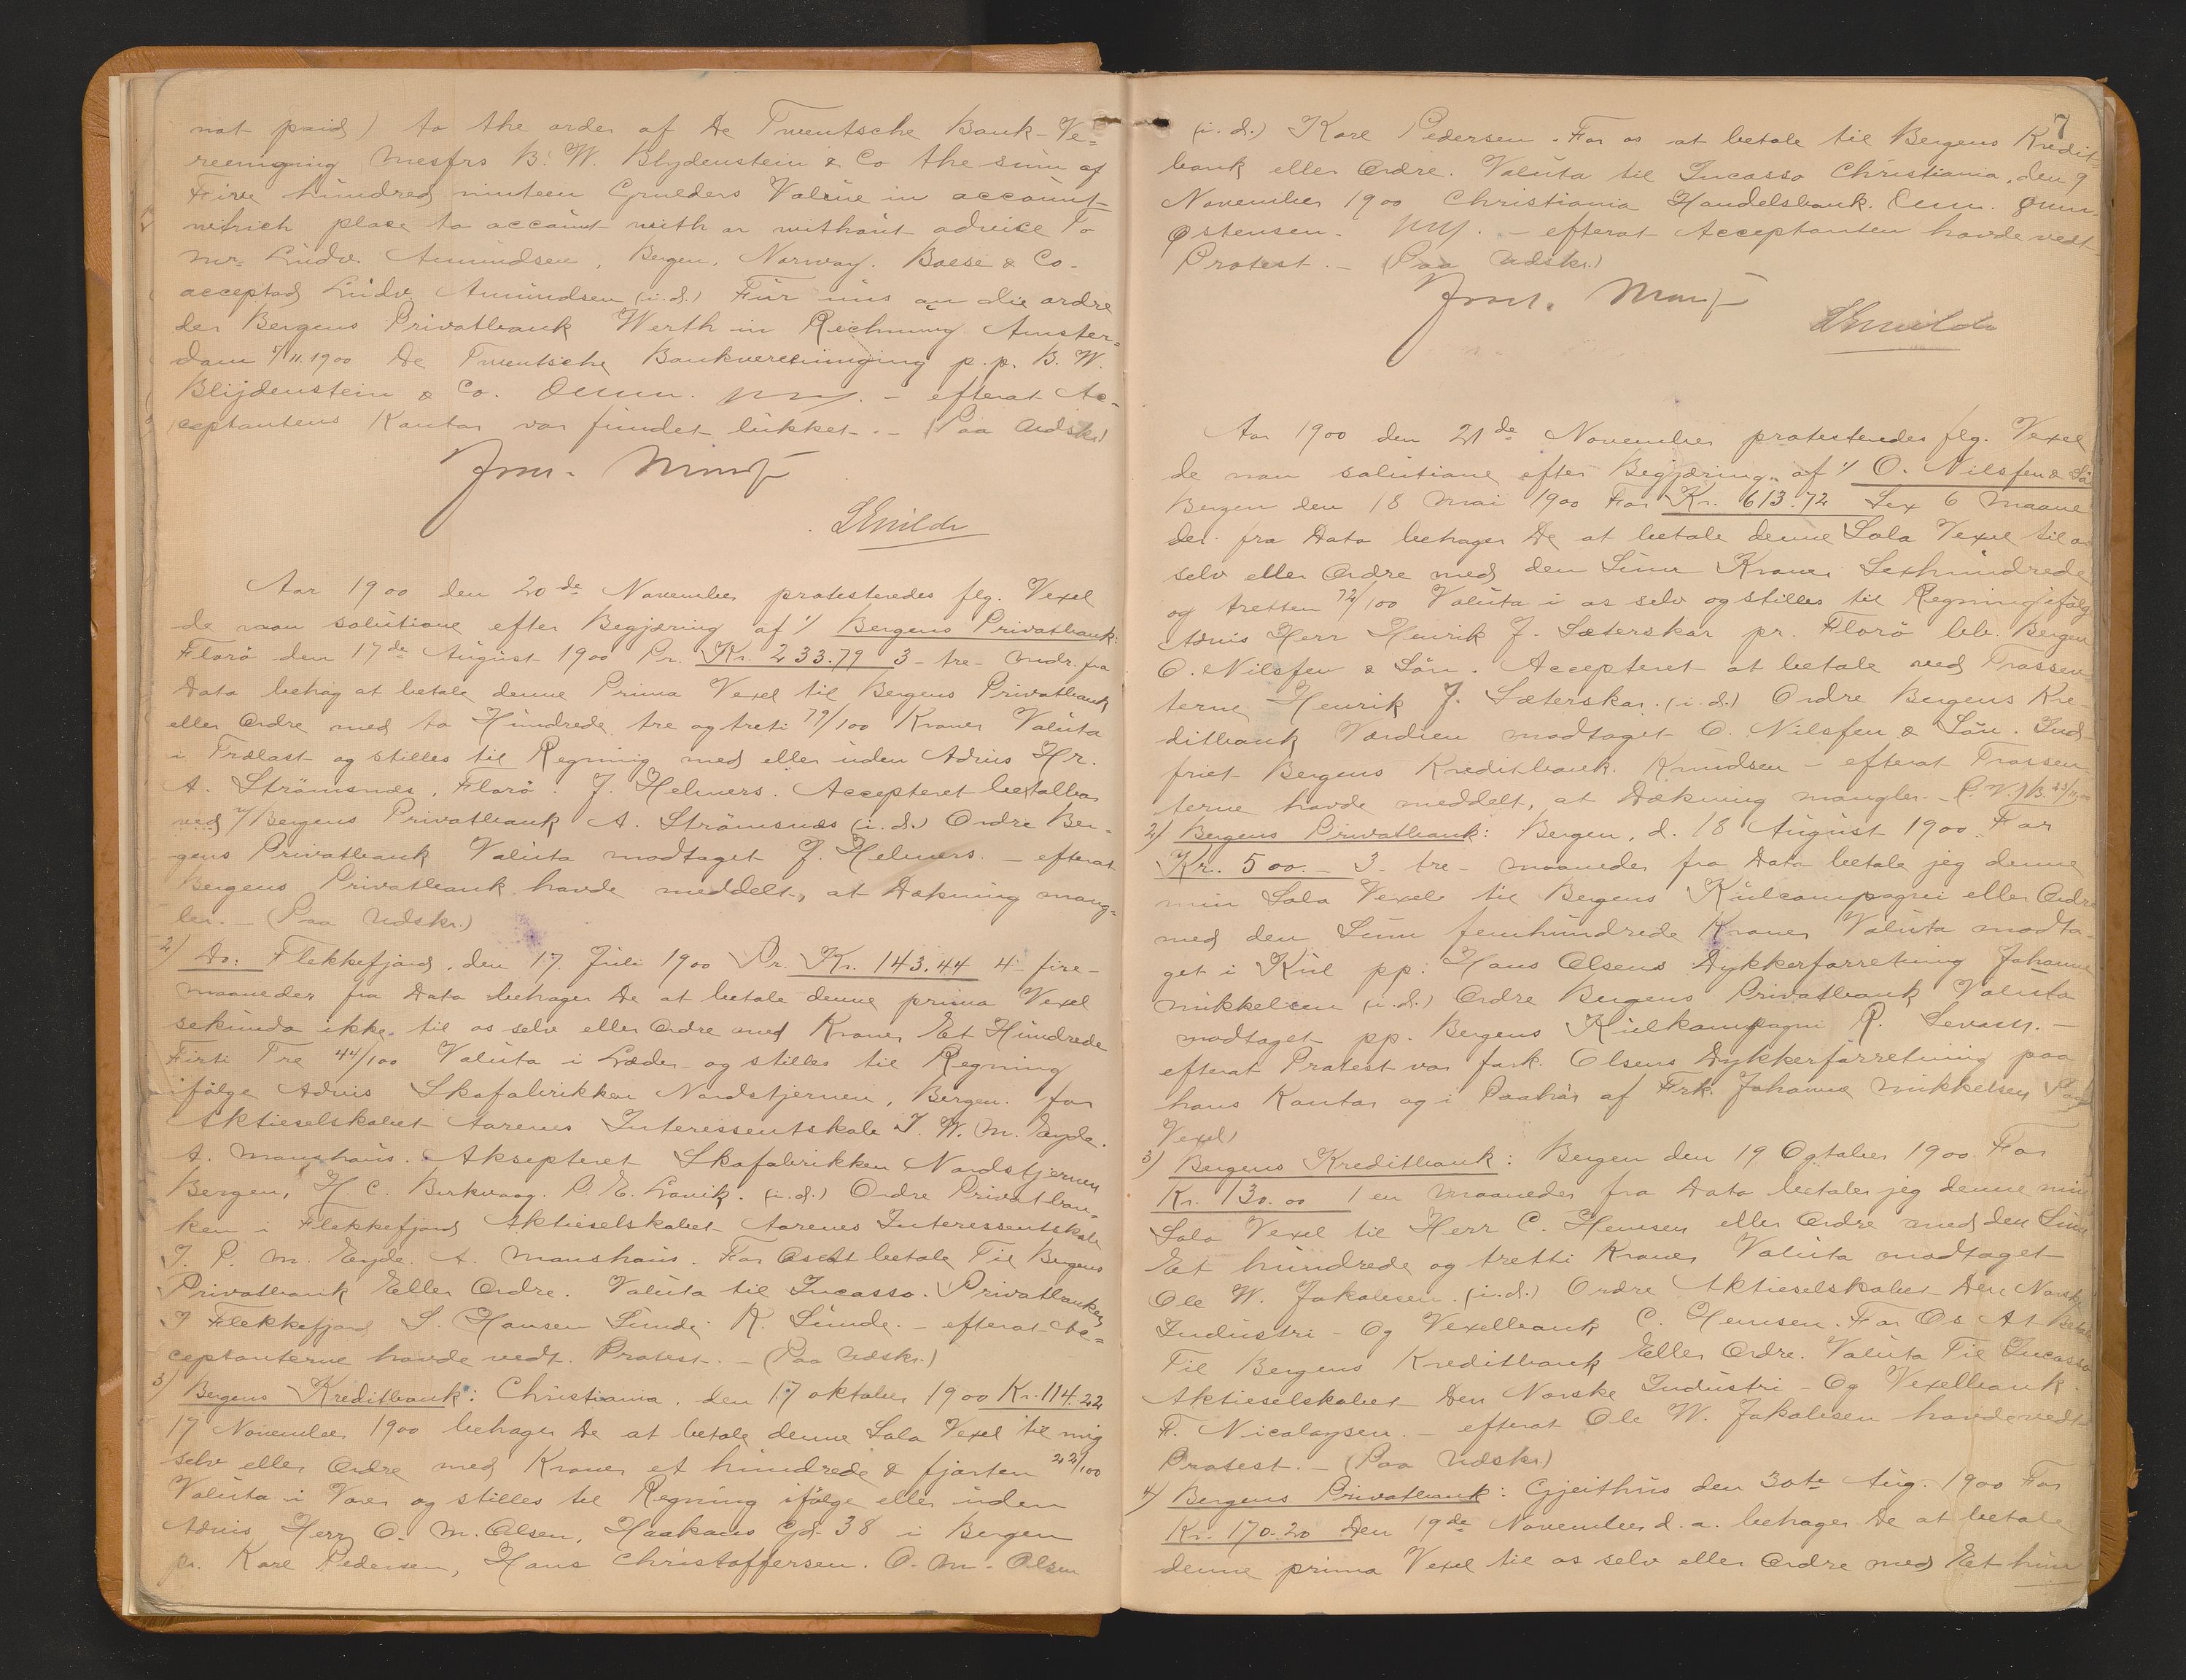 not paid) to the order of De Twentsche Bank-Ve=
reeniging Messrs B. W. Blydenstein & Co the sum of
Five hundred ninteen Grulders Value in account
which place to account with or without advice To
Mr. Ludv. Amundsen, Bergen, Norway. Boese & Co.
accepted Ludv. Amundsen (i.d.) Für uns an die ordre
der Bergens Privatbank Werth in Rechnung Amster=
dam 5/11.1900 De Twentsche Bankvereeniging p.p. B. W.
Blijdenstein & Co. – efterat Ac-
ceptantens Kontor var fundet lukket. – (Paa Udskr)
Aar 1900 den 20de November protesteredes flg. Vexel
de non solutione efter Begjæring af 1) Bergens Privatbank:
Florö den 17de August 1900 Pr. Kr. 233.79 3-tre- Mdr. fra
Dato behag at betale denne Prima Vexel til Bergens Privatbank
eller Ordre med to Hundrede tre og treti 79/100 Kroner Valuta
i Trælast og stilles til Regning med eller uden Advis Hr.
A. Strömsnes, Florö. J. Helmers. Accepteret betalbar
ved Bergens Privatbank A. Strömsnes (i.d.) Ordre Ber-
gens Privatbank Valuta modtaget J. Helmers. – efterat
Bergens Privatbank havde meddelt, at Dækning mang=
ler. – (Paa Udskr.)
2) Do: Flekkefjord, den 17. Juli 1900 Pr. Kr. 143.44 4- fire-
maaneder fra Dato behager De at betale denne prima Vexel
sekunda ikke, til os selv eller Ordre med Kroner Et Hundrede
Firti Tre 44/100 Valuta i Læder og stilles til Regning
ifölge Advis Skofabrikken Nordstjernen, Bergen. for
Aktieselskabet Aarenes Interessentskab J. W. M. Eyde.
A. Manshaus. Aksepteret Skofabrikken Nordstjernen
Bergen, H. C. Birkvaag. P. E. Lavik. (i.d.) Ordre Privatban-
ken i Flekkefjord Aktieselskabet Aarenes Interessentskab
J. P. M. Eyde. A. Manshaus. For Os At betale Til Bergens
Privatbank Eller Ordre. Valuta til Incasso. Privatbanken
I Flekkefjord S. Hansen Sunde. R. Sunde. – efterat Ac=
ceptanterne havde vedt. Protest. – (Paa Udskr.)
3) Bergens Kreditbank: Christiania, den 17 oktober 1900 Kr. 114.22
17 November 1900 behager De at betale denne Sola Vexel til mig
selv eller Ordre med Kroner et hundrede & fjorten 22/100
Valuta i Varer og stilles til Regning ifölge eller uden
Advis Herr O. M. Olsen, Haakons Gd. 38 i Bergen
pr. Karl Pedersen, Hans Christoffersen. O. M. Olsen
7
(i.d.) Karl Pedersen. For os at betale til Bergens Kredit-
bank eller Ordre. Valuta til Incasso Christiania, den 9
November 1900 Christiania Handelsbank.
Østensen. – efterat Acceptanten havde vedt
Protest. – (Paa Udskr.)
Aar 1900 den 21de November protesteredes flg. Vexel
de non solutione efter Begjæring af 1) O. Nilssen & Sön
Bergen den 18 Mai 1900 For Kr. 613.72 Sex 6 Maane
der fra Dato behager De at betale denne Sola Vexel til os
selv eller Ordre med den Sum Kroner Sexhundrede
og tretten 72/100 Valuta i os selv og stilles til Regning ifölge
Advis Herr Henrik J. Sæterskar pr. Florö bb. Bergen
O. Nilssen & Sön. Accepteret at betale ved Trassen
terne Henrik J. Sæterskar. (i.d.) Ordre Bergens Kre-
ditbank Værdien modtaget O. Nilssen & Sön. Ind-
friet Bergens Kreditbank. Knudsen – efterat Trassen-
terne havde meddelt, at Dækning mangler. –
2) Bergens Privatbank: Bergen, d. 18 August 1900. For
Kr. 500. – 3- tre- maaneder fra Dato betale jeg denne
min Sola Vexel til Bergens Kulcompagni eller Ordre
med den Sum femhundrede Kroner Valuta modta-
get i Kul pp. Hans Olsens Dykkerforretning Johanne
Mikkelsen (i.d.) Ordre Bergens Privatbank Valuta
modtaget pp. Bergens Kulkompagni R. –
efterat Protest var fork. Olsens Dykkerforretning paa
hans Kontor og i Paahör af Frk. Johanne Mikkelsen (Paa
Vexel)
3) Bergens Kreditbank: Bergen den 19 Ogtober 1900. For
Kr. 130.00 1 en Maaneder fra Dato betaler jeg denne min
Sola Vexel til Herr C. Hemsen eller Ordre med den Sum
Et hundrede og tretti Kroner Valuta modtaget
Ole W. Jakobsen. (i.d.) Ordre Aktieselskabet Den Norske
Industri- Og Vexelbank C. Hemsen. For Os At Betale
Til Bergens Kreditbank Eller Ordre. Valuta Til Incasso
Aktieselskabet Den Norske Industri- Og Vexelbank.
F. Nicolaysen. – efterat Ole W. Jakobsen havde vedt
Protest. – (Paa Udskr.)
4) Bergens Privatbank: Gjeithus den 30te Aug. 1900 For
Kr. 170.20 Den 19de November d. a. behager De at betale
denne prima Vexel til os selv eller Ordre med Et hun